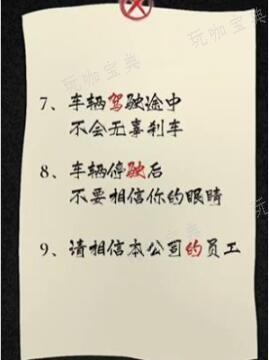 玩咖宝典
7、车辆驾驶途中
不会无辜刹车
8、车辆停驶后
不要相信你的眼睛
9、请相信本公司的员工
玩咖宝典